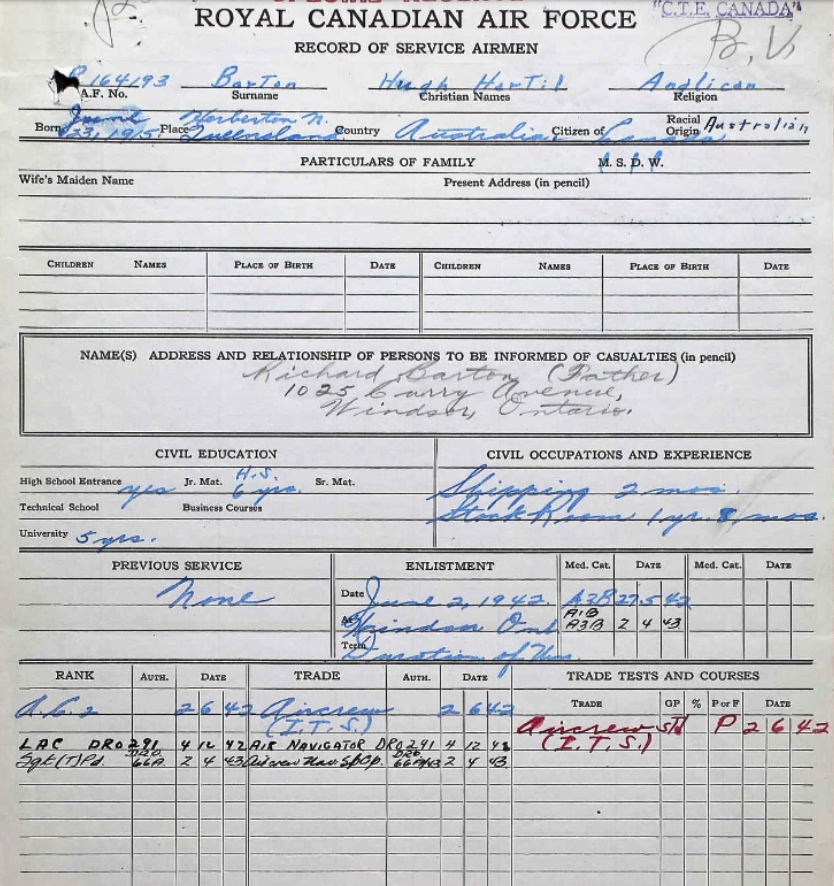 "C.T.E. CANADA"
ROYAL CANADIAN AIR FORCE
RECORD OF SERVICE AIRMEN
B.V.
164193 Barton Hugh Anglican
A.F. No. Surname Christian Names Religion
Born June 23, 1915 Place Herberton N. Queensland Country Australia Citizen of Canada Racial Origin Australian
PARTICULARS OF FAMILY M. S. D. W.
Wife's Maiden Name Present Address (in pencil)
CHILDREN NAMES PLACE OF BIRTH DATE CHILDREN NAMES PLACE OF BIRTH DATE
NAME(S) ADDRESS AND RELATIONSHIP OF PERSONS TO BE INFORMED OF CASUALTIES (in pencil)
Richard Barton (Father)
1025 Curry Avenue,
Windsor, Ontario.
CIVIL EDUCATION CIVIL OCCUPATIONS AND EXPERIENCE
High School Entrance yes Jr. Mat. H.S. 6 yrs. Sr. Mat. Shipping 2 mos.
Technical School Business Courses Stock Room 1 yr. 8 mos.
University 5 yrs.
PREVIOUS SERVICE ENLISTMENT Med. Cat. DATE Med. Cat. DATE
None Date June 2, 1942. A3B 27 5 42
A1B
At Windsor Ont A3B 2 4 43
Term Duration of
RANK AUTH. DATE TRADE AUTH. DATE TRADE TESTS AND COURSES
TRADE GP % P or F DATE
A.C.2 2 6 42 Aircrew (I.T.S.) 2 6 42 Aircrew (I.T.S.) Std P 2 6 42
LAC DRO 291 4 12 42 AIR NAVIGATOR DRO 291 4 12 42
Sgt (T) Pd. 66A 2 4 43 Aircrew Nav. Sp Gp. 2 4 43